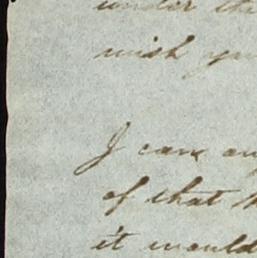 under the
wish you
I can
of that
it would